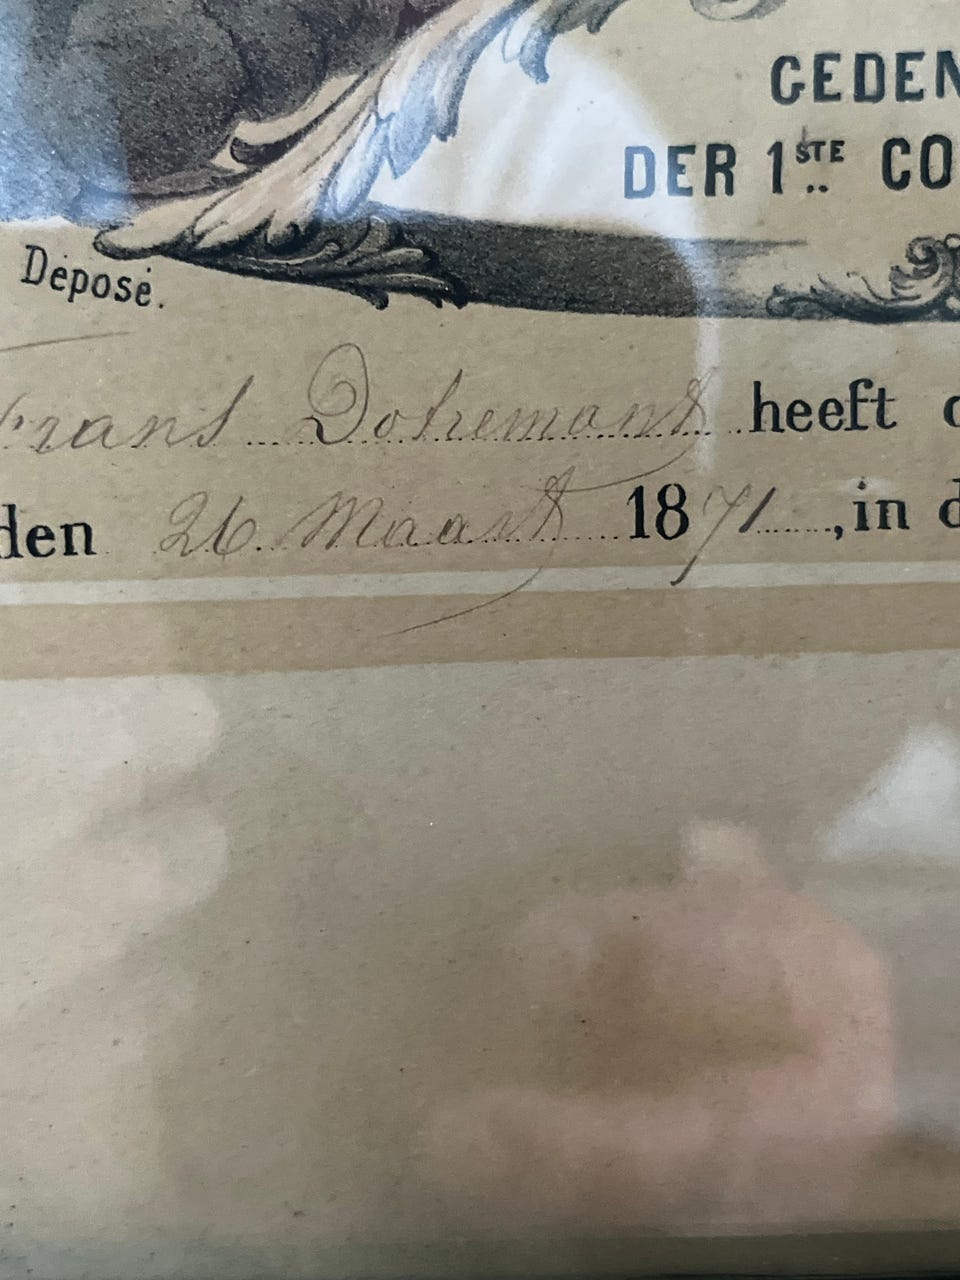 GEDEN
DER 1STE CO
Déposé.
Frans Dohemont heeft
den 26 Maart 1871, in d